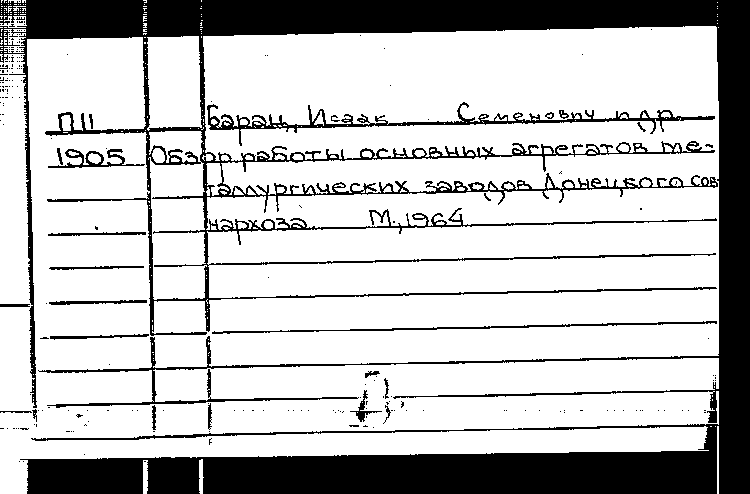 П11 Баран, Исаак Семенович и др.
1905 Обзор работы основных агрегатов ме-
таллургических заводов Донецкого сов-
нархоза М., 1964